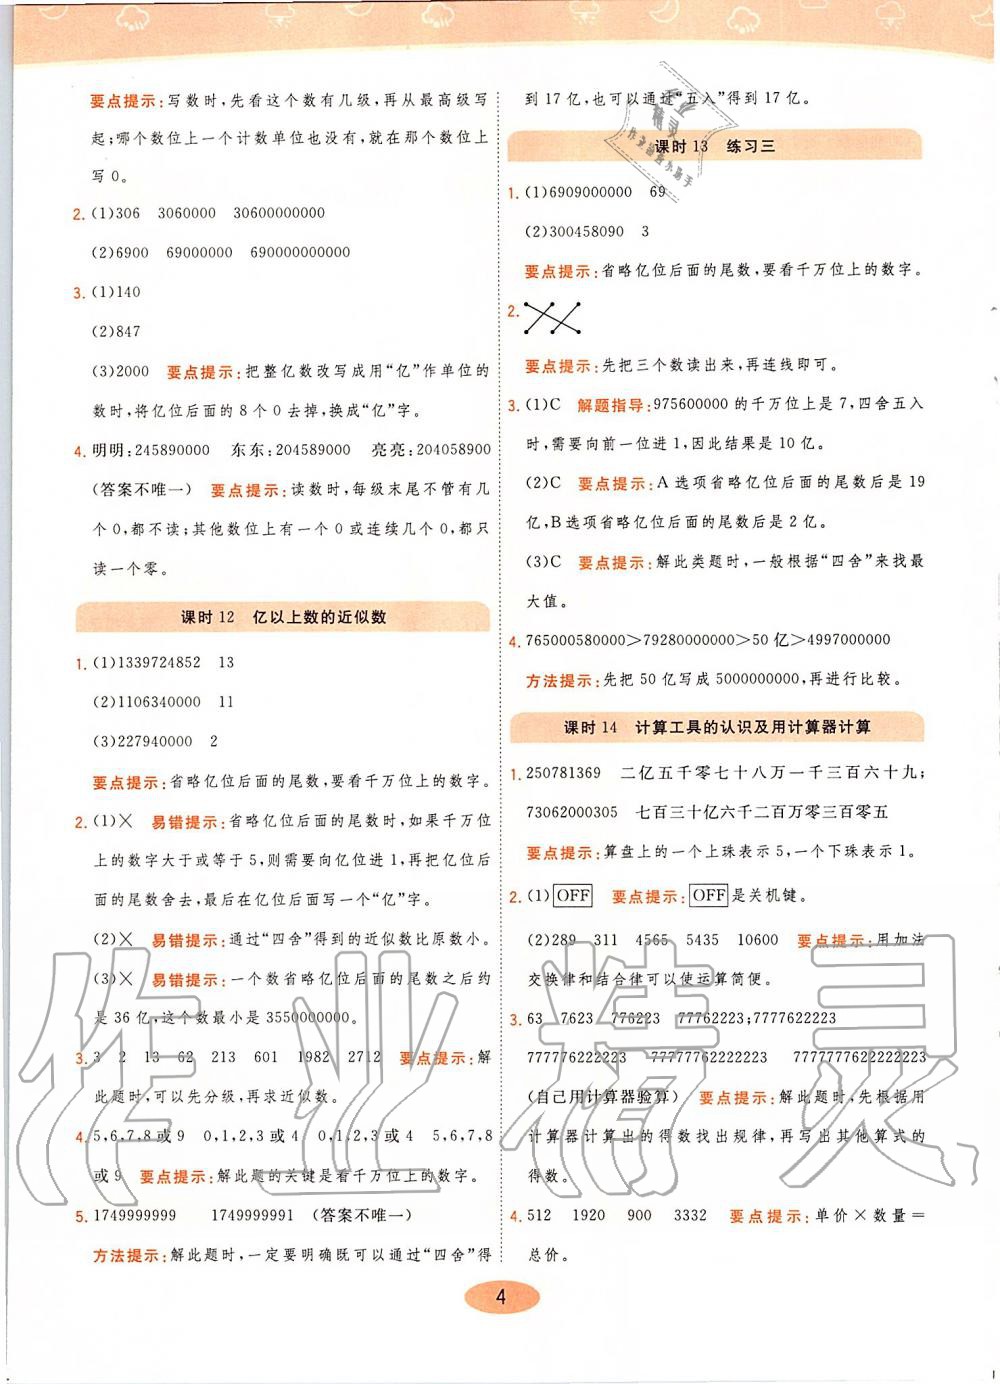 要点提示:写数时,先看这个数有几级,再从最高级写
起;哪个数位上一个计数单位也没有,就在那个数位上
写0。
2. (1)306 3060000 30600000000
(2)6900 69000000 690000000000
3. (1)140
(2)847
(3)2000 要点提示:把整亿数改写成用“亿”作单位的
数时,将亿位后面的8个0去掉,换成“亿”字。
4. 明明:245890000 东东:204589000 亮亮:204058900
(答案不唯一) 要点提示:读数时,每级末尾不管有几
个0,都不读;其他数位上有一个0或连续几个0,都只
读一个零。
课时12 亿以上数的近似数
1. (1)1339724852 13
(2)1106340000 11
(3)227940000 2
要点提示:省略亿位后面的尾数,要看千万位上的数字。
2. (1)× 易错提示:省略亿位后面的尾数时,如果千万位
上的数字大于或等于5,则需要向亿位进1,再把亿位后
面的尾数舍去,最后在亿位的后面写一个“亿”字。
(2)× 易错提示:通过“四舍”得到的近似数比原数小。
(3)× 易错提示:一个数省略亿位后面的尾数之后约
是36亿,这个数最小是3550000000。
3. 3 2 13 62 213 601 1982 2712 要点提示:解
此题时,可以先分级,再求近似数。
4. 5,6,7,8或9 0,1,2,3或4 0,1,2,3或4 5,6,7,8
或9 要点提示:解此题的关键是看千万位上的数字。
5. 1749999999 1749999991 (答案不唯一)
方法提示:解此题时,一定要明确既可以通过“四舍”得
到17亿,也可以通过“五入”得到17亿。
课时13 练习三
1. (1)6909000000 69
(2)300458090 3
要点提示:省略亿位后面的尾数,要看千万位上的数字。
2.
要点提示:先把三个数读出来,再连线即可。
3. (1)C 解题指导:975600000的千万位上是7,四舍五入
时,需要向前一位进1,因此结果是10亿。
(2)C 要点提示:A选项省略亿位后面的尾数后是19
亿,B选项省略亿位后面的尾数后是2亿。
(3)C 要点提示:解此类题时,一般根据“四舍”来找最
大值。
4. 765000580000>79280000000>50亿>4997000000
方法提示:先把50亿写成5000000000,再进行比较。
课时14 计算工具的认识及用计算器计算
1. 250781369 二亿五千零七十八万一千三百六十九;
73062000305 七百三十亿六千二百万零三百零五
要点提示:算盘上的一个上珠表示5,一个下珠表示1。
2. (1)OFF 要点提示:OFF是关机键。
(2)289 311 4565 5435 10600 要点提示:用加法
交换律和结合律可以使运算简便。
3. 63 7623 776223 77762223;7777622223
777776222223 77777762222223 7777777622222223
(自己用计算器验算) 要点提示:解此题时,先根据用
计算器计算出的得数找出规律,再写出其他算式的
得数。
4. 512 1920 900 3332 要点提示:单价×数量=
总价。
4
作业精灵